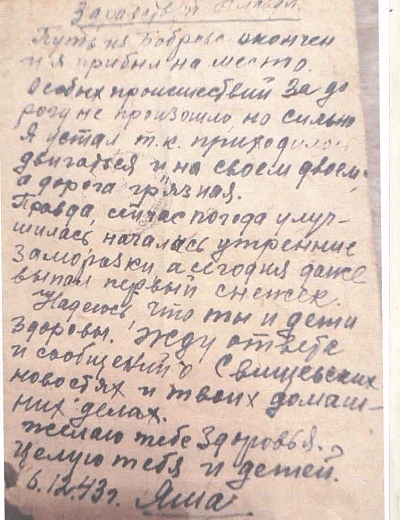 Здравствуй Клавди.
Путь из Боброва окончен
и я прибыл на место.
Особых происшествий за до
рогу не произошло, но сильно
Я устал т.к. приходилось
двигаться и на своем двоем,
а дорога грязная.
Правда, сейчас погода улуч-
шилась, начались утренние
заморозки, а сегодня даже
выпал первый снежек.
Надеюсь, что ты и дети
здоровы. Жду ответа
и сообщений о Свищевских
новостях и твоих домаш-
них делах.
Желаю тебе здоровья.
Целую тебя и детей.
6.12.43 г. Яша